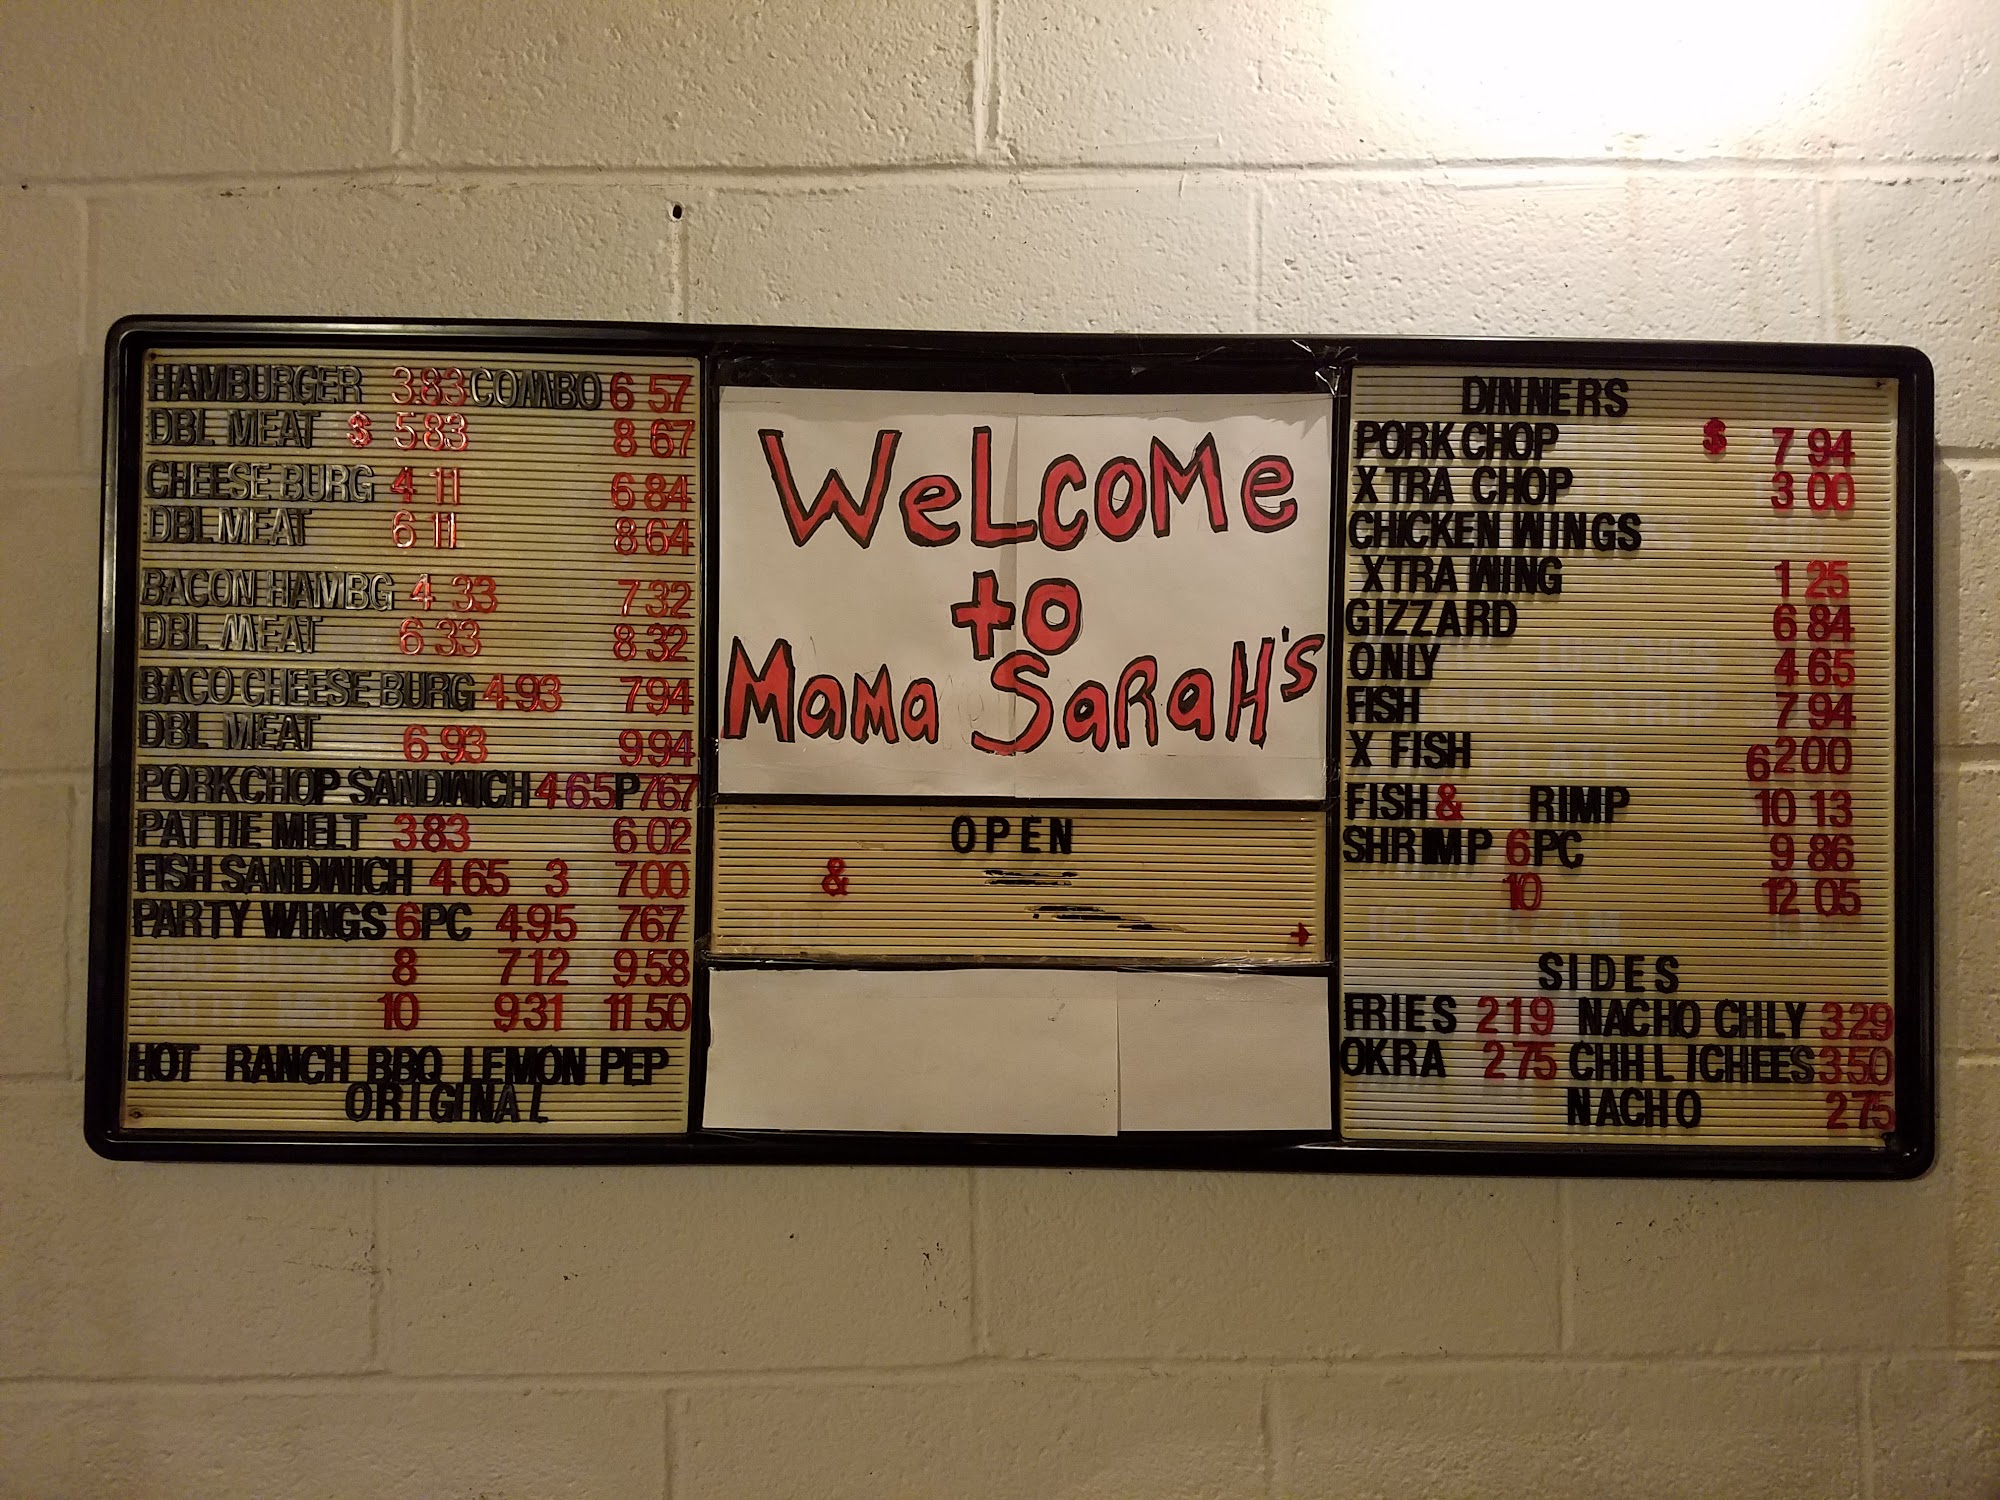 HAMBURGER 383 COMBO 6 57
DBL MEAT $ 583 8 67
CHEESE BURG 4 11 6 84
DBL MEAT 6 11 8 64
BACON HAMBG 4 33 7 32
DBL MEAT 6 33 8 32
BACO CHEESE BURG 4 93 7 94
DBL MEAT 6 93 9 94
PORKCHOP SANDWICH 465 P 767
PATTIE MELT 383 6 02
FISH SANDWICH 465 3 700
PARTY WINGS 6PC 495 767
8 712 958
10 931 11 50
HOT RANCH BBQ LEMON PEP
ORIGINAL
WeLcoMe
to
MaMa SaRaH's
OPEN
&
DINNERS
PORK CHOP $ 7 94
X TRA CHOP 3 00
CHICKEN WINGS
XTRA WING 1 25
GIZZARD 6 84
ONLY 4 65
FISH 7 94
X FISH 6200
FISH & RIMP 10 13
SHRIMP 6PC 9 86
10 12 05
SIDES
FRIES 219 NACHO CHLY 329
OKRA 275 CHH L ICHEES 350
NACHO 275